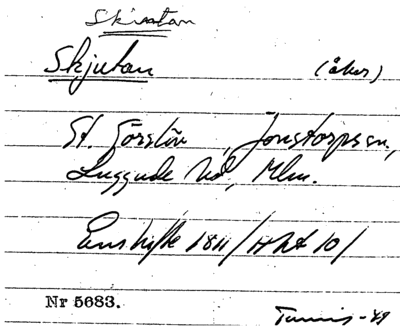 Skjutan
Skjutan (åker)
St. Görslöv, Jonstorps sn,
Luggude hd, Mlm.
Enskifte 1811 / Akt 10 /
Nr 5683.
-49